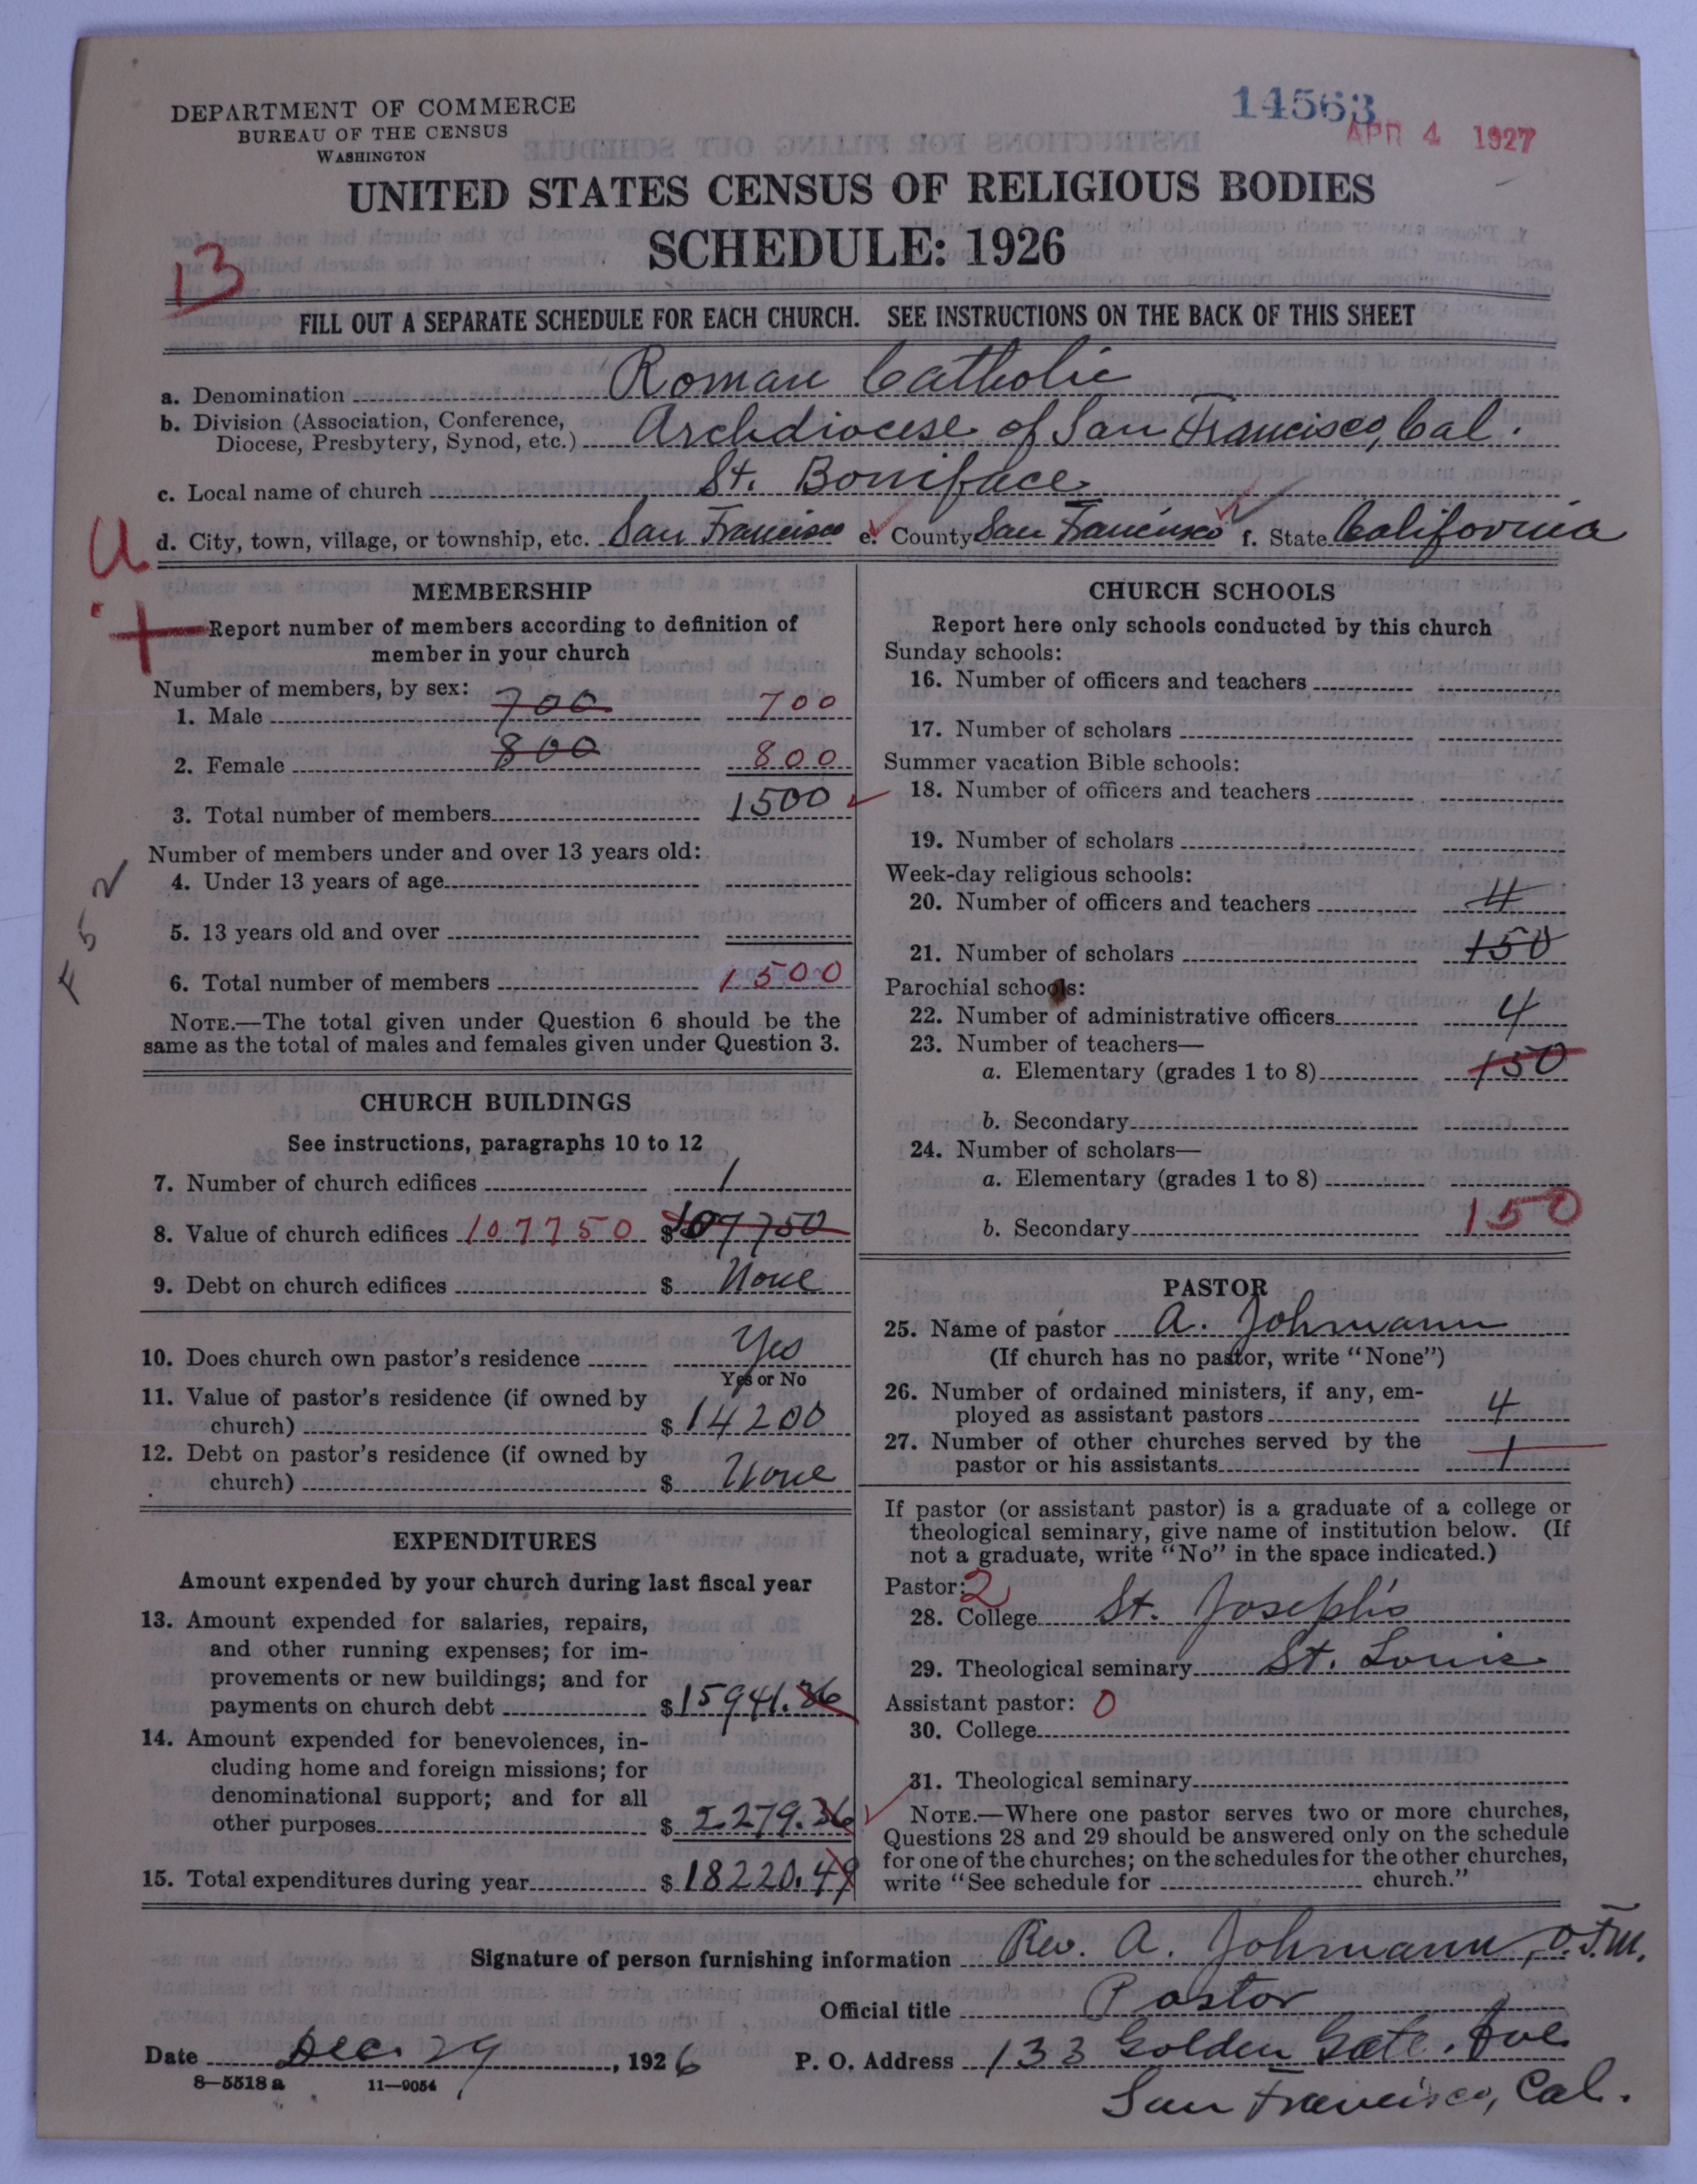 DEPARTMENT OF COMMERCE
BUREAU OF THE CENSUS
WASHINGTON
14563
APR 4 1927
UNITED STATES CENSUS OF RELIGIOUS BODIES
SCHEDULE: 1926
13
FILL OUT A SEPARATE SCHEDULE FOR EACH CHURCH. SEE INSTRUCTIONS ON THE BACK OF THIS SHEET
a. Denomination Roman Catholic
b. Division (Association, Conference,
Diocese, Presbytery, Synod, etc.) Archdiocese of San Francisco, Cal.
c. Local name of church St. Boniface
d. City, town, village, or township, etc. San Francisco e. County San Francisco f. State California
U
MEMBERSHIP
Report number of members according to definition of
member in your church
Number of members, by sex:
1. Male 700 700
2. Female 800 800
3. Total number of members 1500
Number of members under and over 13 years old:
4. Under 13 years of age
5. 13 years old and over
6. Total number of members 1500
F 52
NOTE.—The total given under Question 6 should be the
same as the total of males and females given under Question 3.
CHURCH BUILDINGS
See instructions, paragraphs 10 to 12
7. Number of church edifices 1
8. Value of church edifices 107750 $107750
9. Debt on church edifices $ None
10. Does church own pastor's residence Yes
Yes or No
11. Value of pastor's residence (if owned by
church) $14200
12. Debt on pastor's residence (if owned by
church) $ None
EXPENDITURES
Amount expended by your church during last fiscal year
13. Amount expended for salaries, repairs,
and other running expenses; for im-
provements or new buildings; and for
payments on church debt $15941.
14. Amount expended for benevolences, in-
cluding home and foreign missions; for
denominational support; and for all
other purposes $2279.
15. Total expenditures during year $18220.
CHURCH SCHOOLS
Report here only schools conducted by this church
Sunday schools:
16. Number of officers and teachers
17. Number of scholars
Summer vacation Bible schools:
18. Number of officers and teachers
19. Number of scholars
Week-day religious schools:
20. Number of officers and teachers 4
21. Number of scholars 150
Parochial schools:
22. Number of administrative officers 4
23. Number of teachers—
a. Elementary (grades 1 to 8) 150
b. Secondary
24. Number of scholars—
a. Elementary (grades 1 to 8)
b. Secondary 150
PASTOR
25. Name of pastor A. Johmann
(If church has no pastor, write "None")
26. Number of ordained ministers, if any, em-
ployed as assistant pastors 4
27. Number of other churches served by the
pastor or his assistants 1
If pastor (or assistant pastor) is a graduate of a college or
theological seminary, give name of institution below. (If
not a graduate, write "No" in the space indicated.)
Pastor: 2
28. College St. Joseph's
29. Theological seminary St. Louis
Assistant pastor: 0
30. College
31. Theological seminary
NOTE.—Where one pastor serves two or more churches,
Questions 28 and 29 should be answered only on the schedule
for one of the churches; on the schedules for the other churches,
write "See schedule for church."
Signature of person furnishing information Rev. A. Johmann, O.F.M.
Official title Pastor
Date Dec. 29, 1926 P. O. Address 133 Golden Gate Ave
8—5518 a 11—9054
San Francisco, Cal.